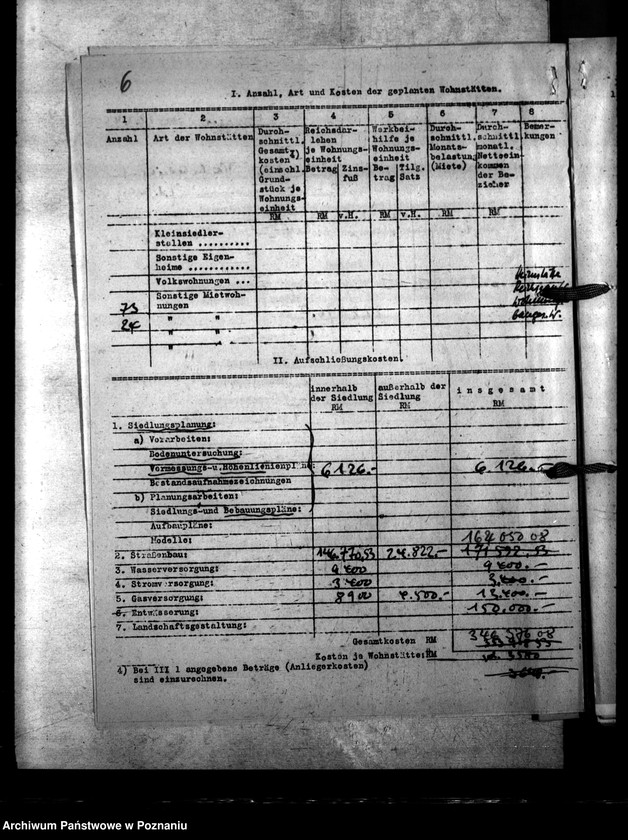 6
I. Anzahl, Art und Kosten der geplanten Wohnstätten.
1 2 3 4 5 6 7 8
Anzahl
Art der Wohnstätten
Durch-
schnittl.
Gesamt-
kosten 4)
(einschl.
Grund-
stück je
Wohnungs-
einheit
RM
Reichsdar-
lehen
je Wohnungs-
einheit
Betrag Zins-
fuß
RM v.H.
Werkbei-
hilfe je
Wohnungs-
einheit
Be- Tilg.
trag Satz
RM v.H.
Durch-
schnittl.
Monats-
belastung
(Miete)
RM
Durch-
schnittl.
monatl.
Nettoein-
kommen
der Be-
zieher
RM
Bemer-
kungen
Kleinsiedler-
stellen ..........
Sonstige Eigen-
heime ............
Volkswohnungen ...
Sonstige Mietwoh-
73 nungen
24 " "
" "
II. Aufschließungskosten.
innerhalb
der Siedlung
RM
außerhalb der
Siedlung
RM
insgesamt
RM
1. Siedlungsplanung:
a) Vorarbeiten:
Bodenuntersuchung:
Vermessungs-u.Höhenlinienpläne: 6126.- 6.126.-
Bestandsaufnahmezeichnungen
b) Planungsarbeiten:
Siedlungs-und Bebauungspläne:
Aufbaupläne:
Modelle:
164 050 08
2. Straßenbau: 146.770,53 24.822.-
3. Wasserversorgung: 9 400 9400.-
4. Stromversorgung: 3 400 3.400.-
5. Gasversorgung: 8900 4.500.- 13.400.-
6. Entwässerung: 150.000.-
7. Landschaftsgestaltung:
Gesamtkosten RM
Kosten je Wohnstätte: RM
4) Bei III 1 angegebene Beträge (Anliegerkosten)
sind einzurechnen.
Archiwum Państwowe w Poznaniu